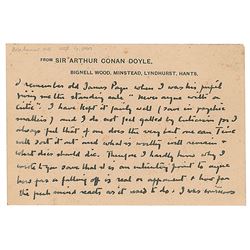 FROM SIR ARTHUR CONAN DOYLE,
BIGNELL WOOD, MINSTEAD, LYNDHURST, HANTS.
I remember old James Payn when I was his pupil
giving me the standing rule "Never argue with a
critic". I have kept it fairly well (save in psychic
matters) and I do not feel galled by criticism for I
always feel that if one does the very best one can Time
will sort it out and what is worthy will remain &
what dies should die. Therefore I hardly know why I
wrote to you save that it is an interesting point to argue
how far a falling off is real or apparent & how far
the mind reacts as it used to do. I was